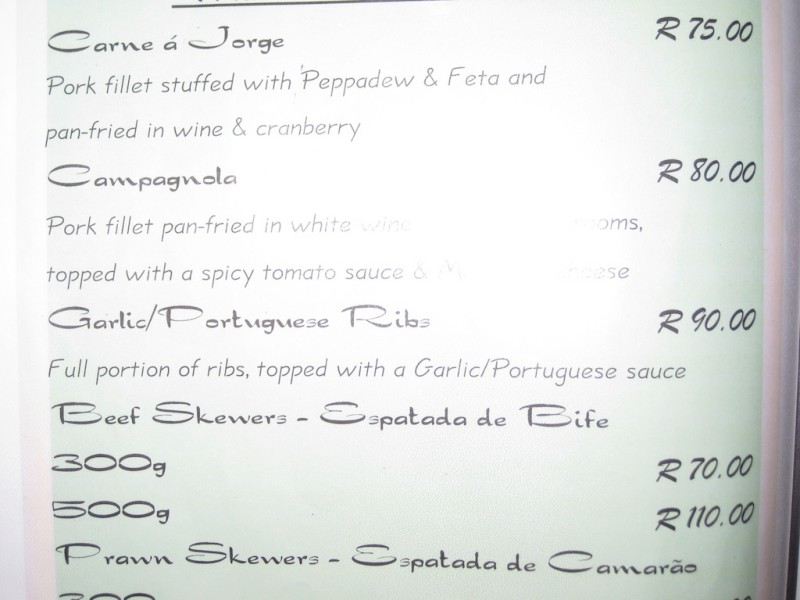 Carne á Jorge R 75.00
Pork fillet stuffed with Peppadew & Feta and
pan-fried in wine & cranberry
Campagnola R 80.00
Pork fillet pan-fried in white wine
topped with a spicy tomato sauce &
Garlic/Portuguese Ribs R 90.00
Full portion of ribs, topped with a Garlic/Portuguese sauce
Beef Skewers - Espatada de Bife
300g R 70.00
500g R 110.00
Prawn Skewers - Espatada de Camarão